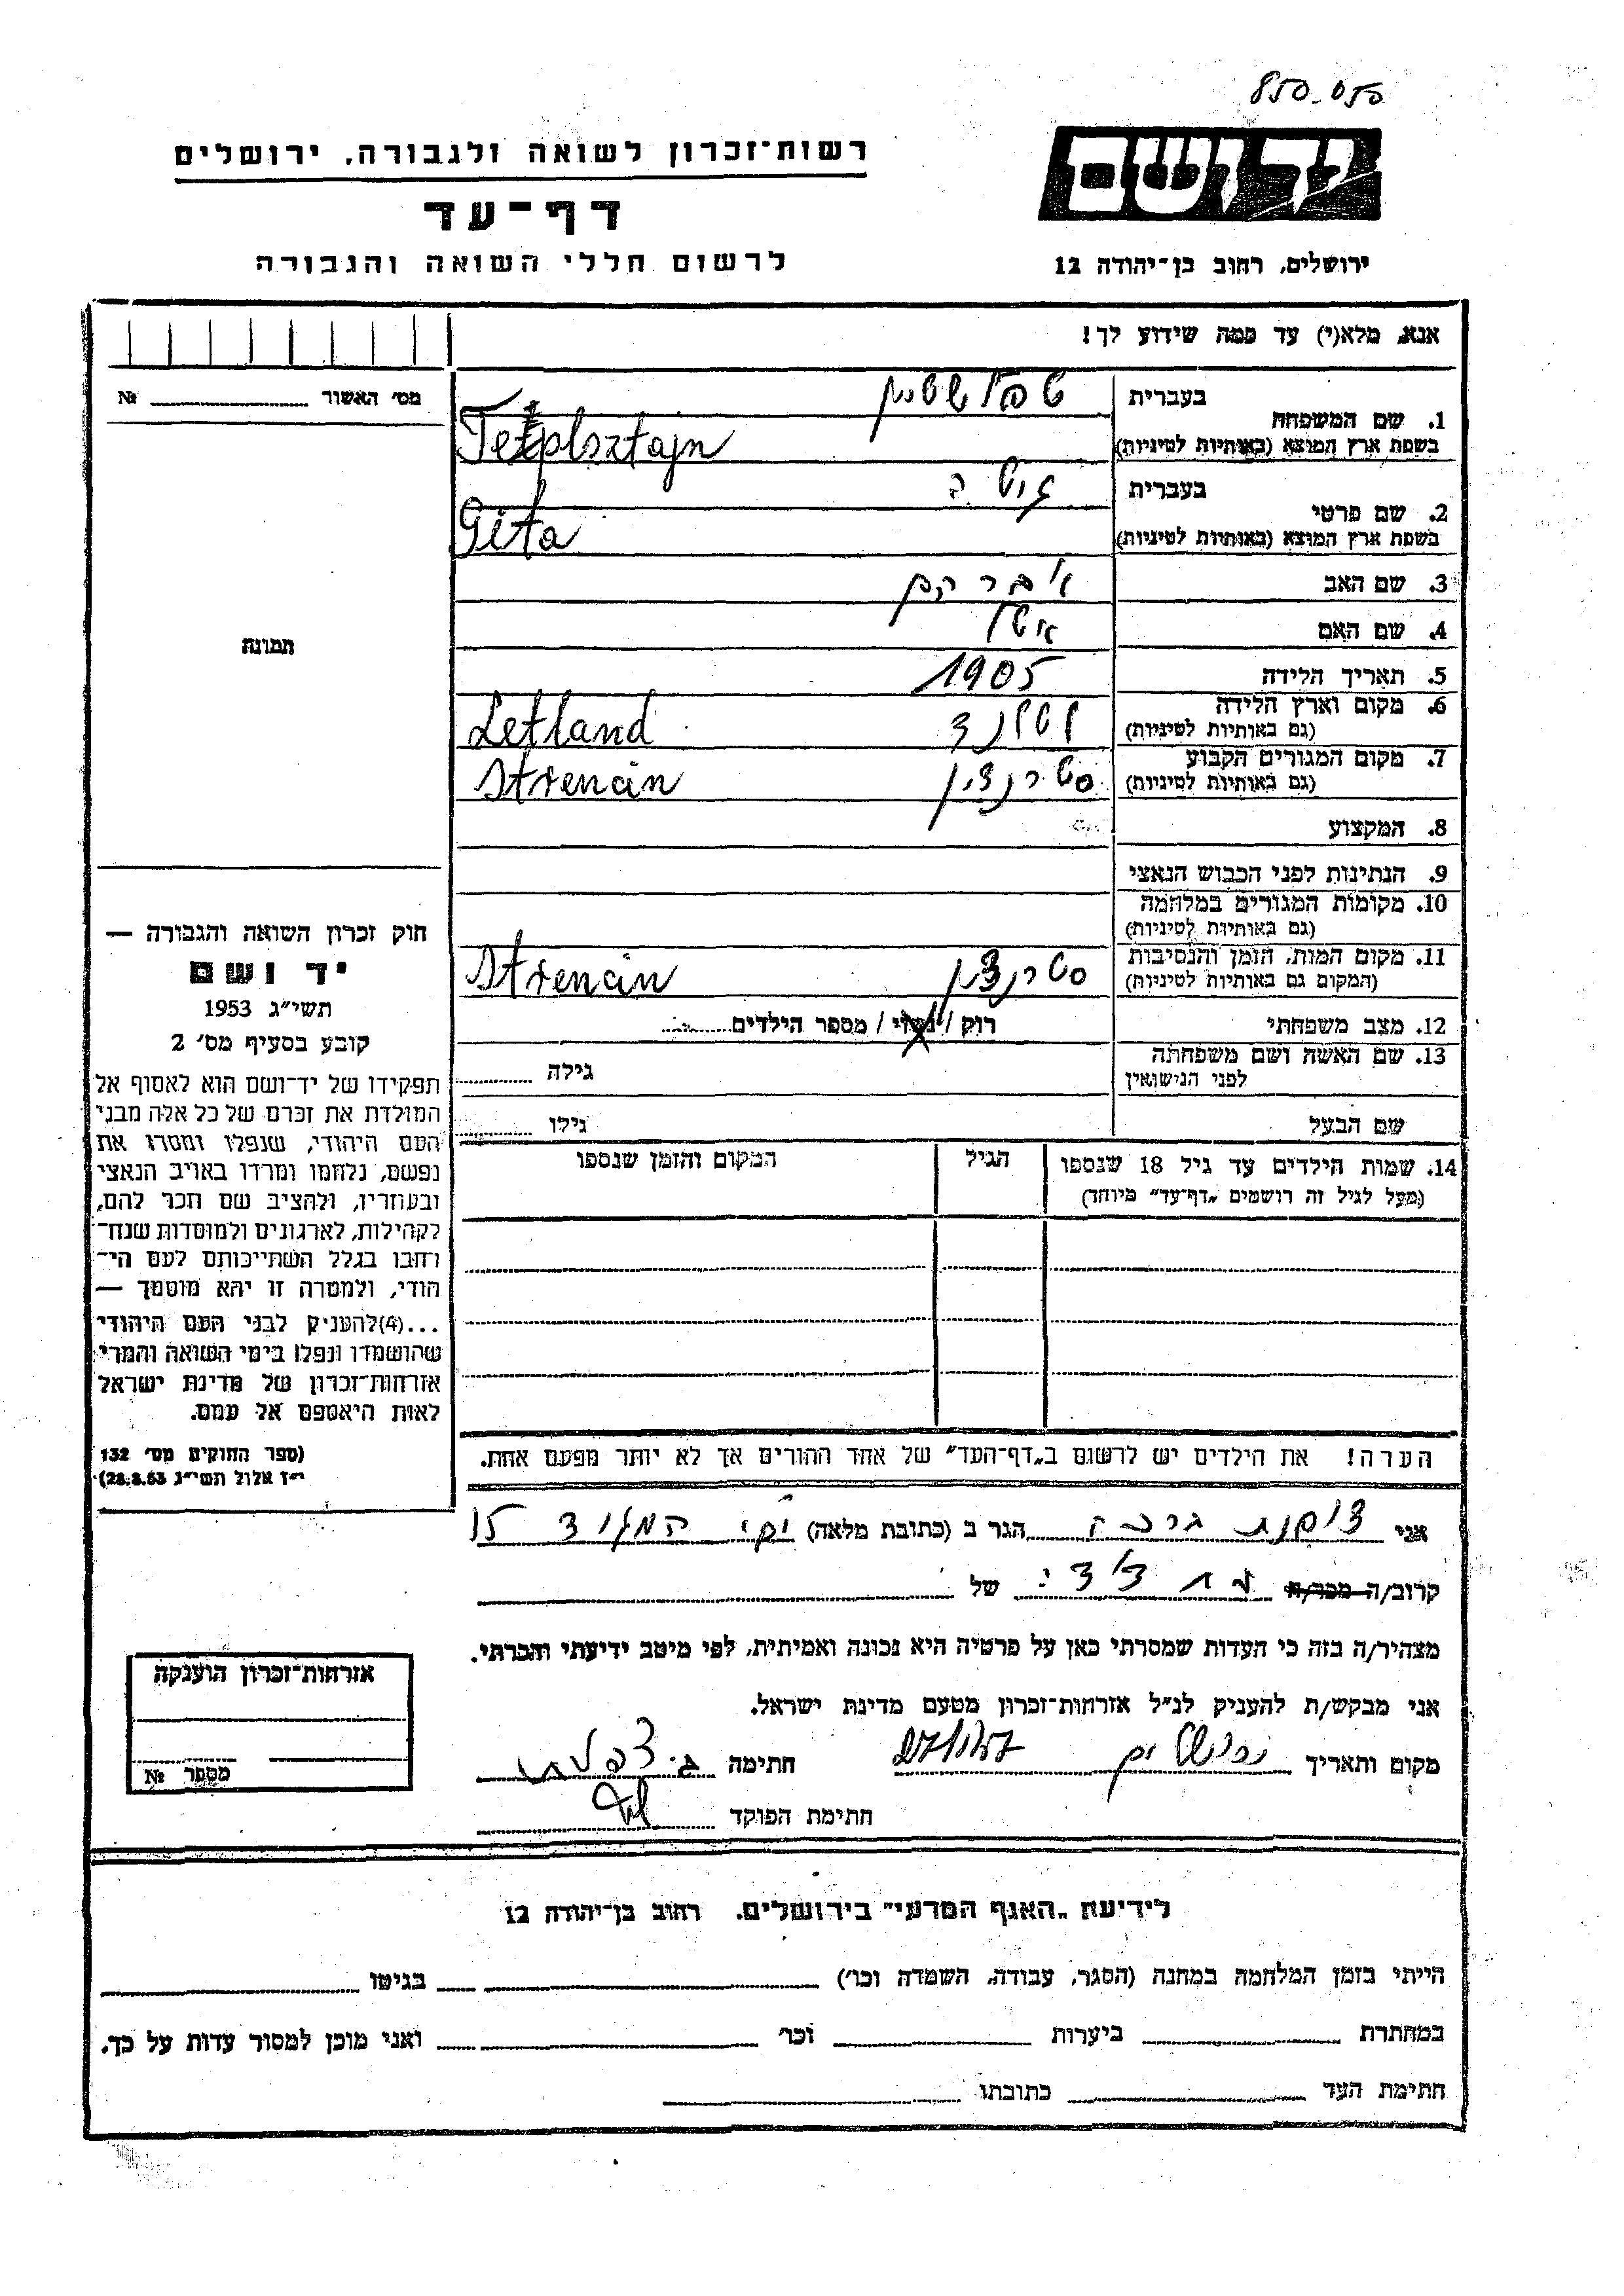 850-050
רשות־זכרון לשואה ולגבורה, ירושלים
יד ושם
דף־עד
לרשום חללי השואה והגבורה
ירושלים, רחוב בן־יהודה 12
אנא, מלא(י) עד כמה שידוע לך!
מס׳ האשור № 
1. שם המשפחה בעברית טפלשטיין
בשפת ארץ המוצא (באותיות לטיניות) Teplsztajn
2. שם פרטי בעברית גיטה
בשפת ארץ המוצא (באותיות לטיניות) Gita
3. שם האב אברהם
4. שם האם אטל
5. תאריך הלידה 1905
6. מקום וארץ הלידה (גם באותיות לטיניות) לטלנד Letland
7. מקום המגורים הקבוע (גם באותיות לטיניות) סטרנצין Strencin
8. המקצוע
9. הנתינות לפני הכבוש הנאצי
10. מקומות המגורים במלחמה (גם באותיות לטיניות)
11. מקום המות, הזמן והנסיבות (המקום גם באותיות לטיניות) סטרנצין Strencin
12. מצב משפחתי רוק / נשוי / מספר הילדים
13. שם האשה ושם משפחתה לפני הנישואין גילה
שם הבעל גילו
14. שמות הילדים עד גיל 18 שנספו הגיל המקום והזמן שנספו
(מעל לגיל זה רושמים „דף־עד״ מיוחד)
תמונה
חוק זכרון השואה והגבורה —
יד ושם
תשי״ג 1953
קובע בסעיף מס׳ 2
תפקידו של יד־ושם הוא לאסוף אל
המולדת את זכרם של כל אלה מבני
העם היהודי, שנפלו ומסרו את
נפשם, נלחמו ומרדו באויב הנאצי
ובעוזריו, ולהציב שם וזכר להם,
לקהילות, לארגונים ולמוסדות שנח־
רבו בגלל השתייכותם לעם הי־
הודי, ולמטרה זו יהא מוסמך —
...(4)להעניק לבני העם היהודי
שהושמדו ונפלו בימי השואה והמרי
אזרחות־זכרון של מדינת ישראל
לאות היאספם אל עמם.
(ספר החוקים מס׳ 132
י״ז אלול תשי״ג 28.8.53)
הערה! את הילדים יש לרשום ב„דף־העד״ של אחד ההורים אך לא יותר מפעם אחת.
אני הגר ב (כתובת מלאה) 15
קרוב/ה מכר/ה של
מצהיר/ה בזה כי העדות שמסרתי כאן על פרטיה היא נכונה ואמיתית, לפי מיטב ידיעתי והכרתי.
אני מבקש/ת להעניק לנ״ל אזרחות־זכרון מטעם מדינת ישראל.
מקום ותאריך ירושלים חתימה
חתימת הפוקד
אזרחות־זכרון הוענקה
מספר №
לידיעת „האגף המדעי״ בירושלים. רחוב בן־יהודה 12
הייתי בזמן המלחמה במחנה (הסגר, עבודה, השמדה וכו׳) בגיטו
במחתרת ביערות וכו׳ ואני מוכן למסור עדות על כך.
חתימת העד כתובתו